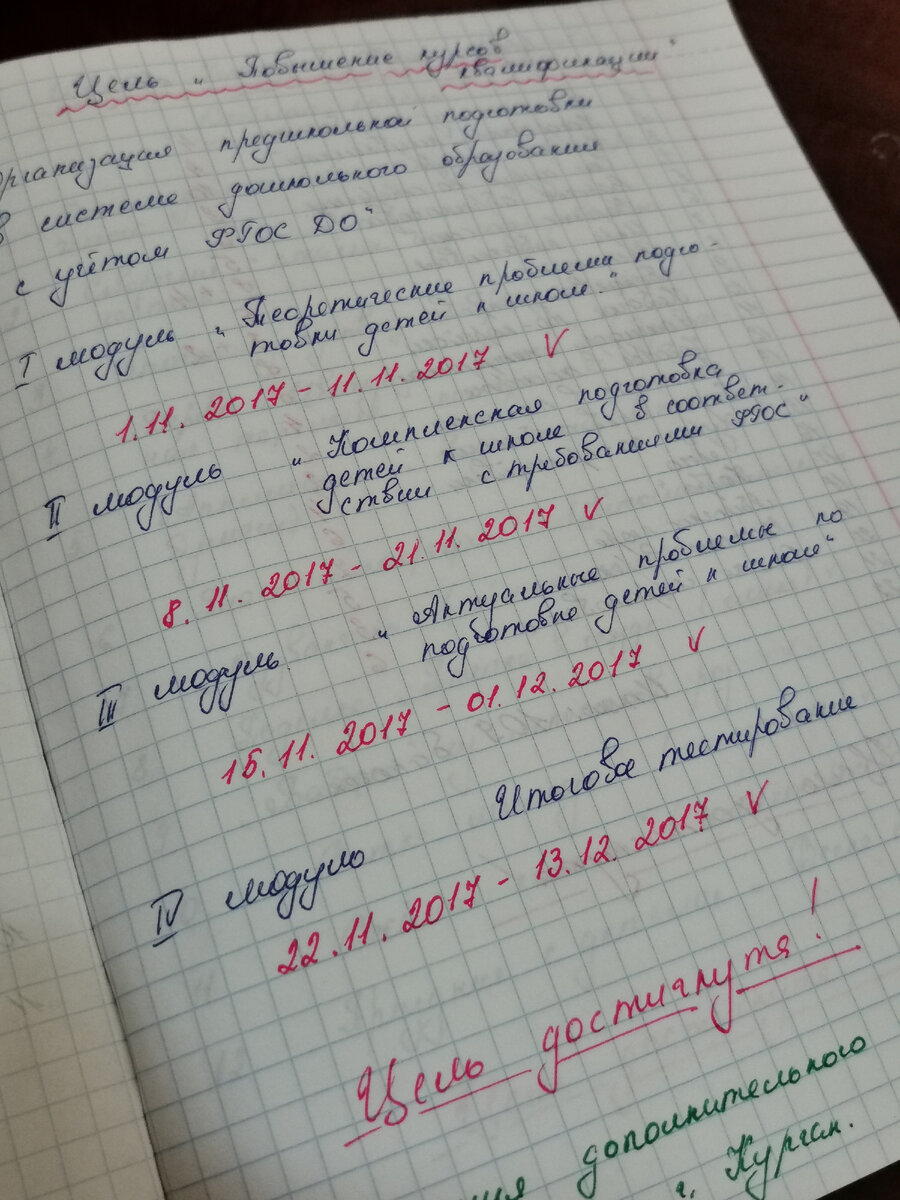 Цель „Повышение курсов
квалификации"
организация предшкольной подготовки
в системе дошкольного образования
с учётом ФГОС ДО"
I модуль „Теоретические проблемы подго-
товки детей к школе."
1.11.2017 - 11.11.2017 V
II модуль „Комплексная подготовка
детей к школе в соответ-
ствии с требованиями ФГОС"
8.11.2017 - 21.11.2017 V
III модуль „Актуальные проблемы по
подготовке детей к школе"
15.11.2017 - 01.12.2017 V
IV модуль Итоговое тестирование
22.11.2017 - 13.12.2017 V
Цель достигнута!
дополнительного
г. Курган.